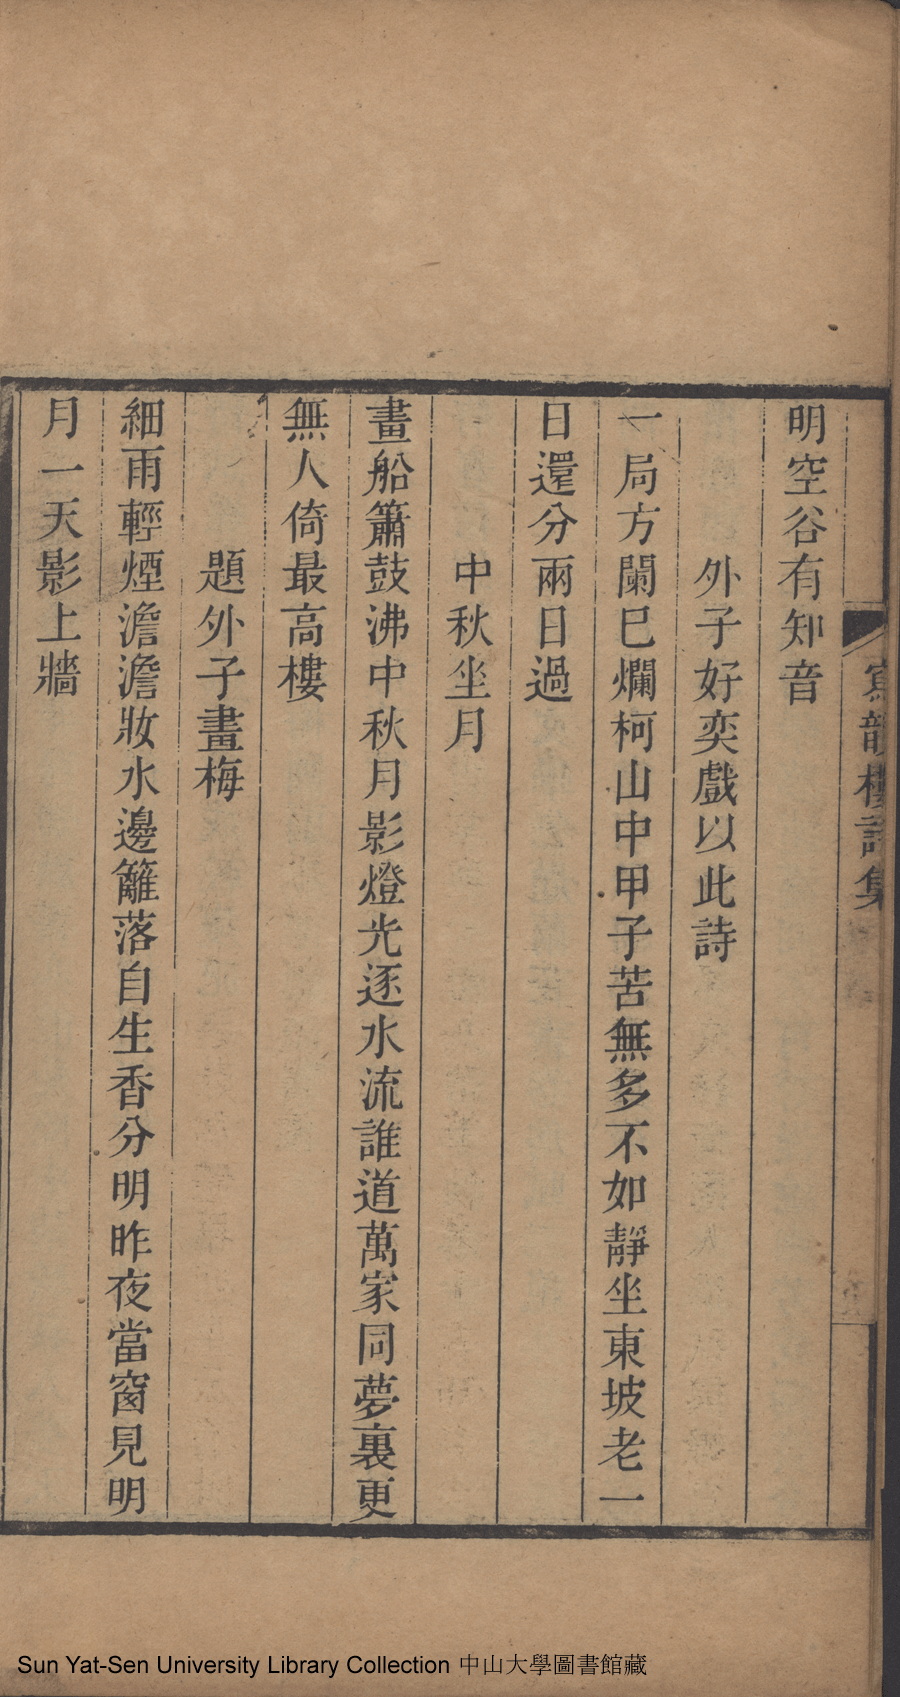 寫韻樓詩集
明空谷有知音
外子好奕戲以此詩
一局方闌巳爛柯山中甲子苦無多不如靜坐東坡老一
日還分兩日過
中秋坐月
畫船簫鼓沸中秋月影燈光逐水流誰道萬家同夢裏更
無人倚最高樓
題外子畫梅
細雨輕煙澹澹妝水邊籬落自生香分明昨夜當窗見明
月一天影上牆
Sun Yat-Sen University Library Collection 中山大學圖書館藏